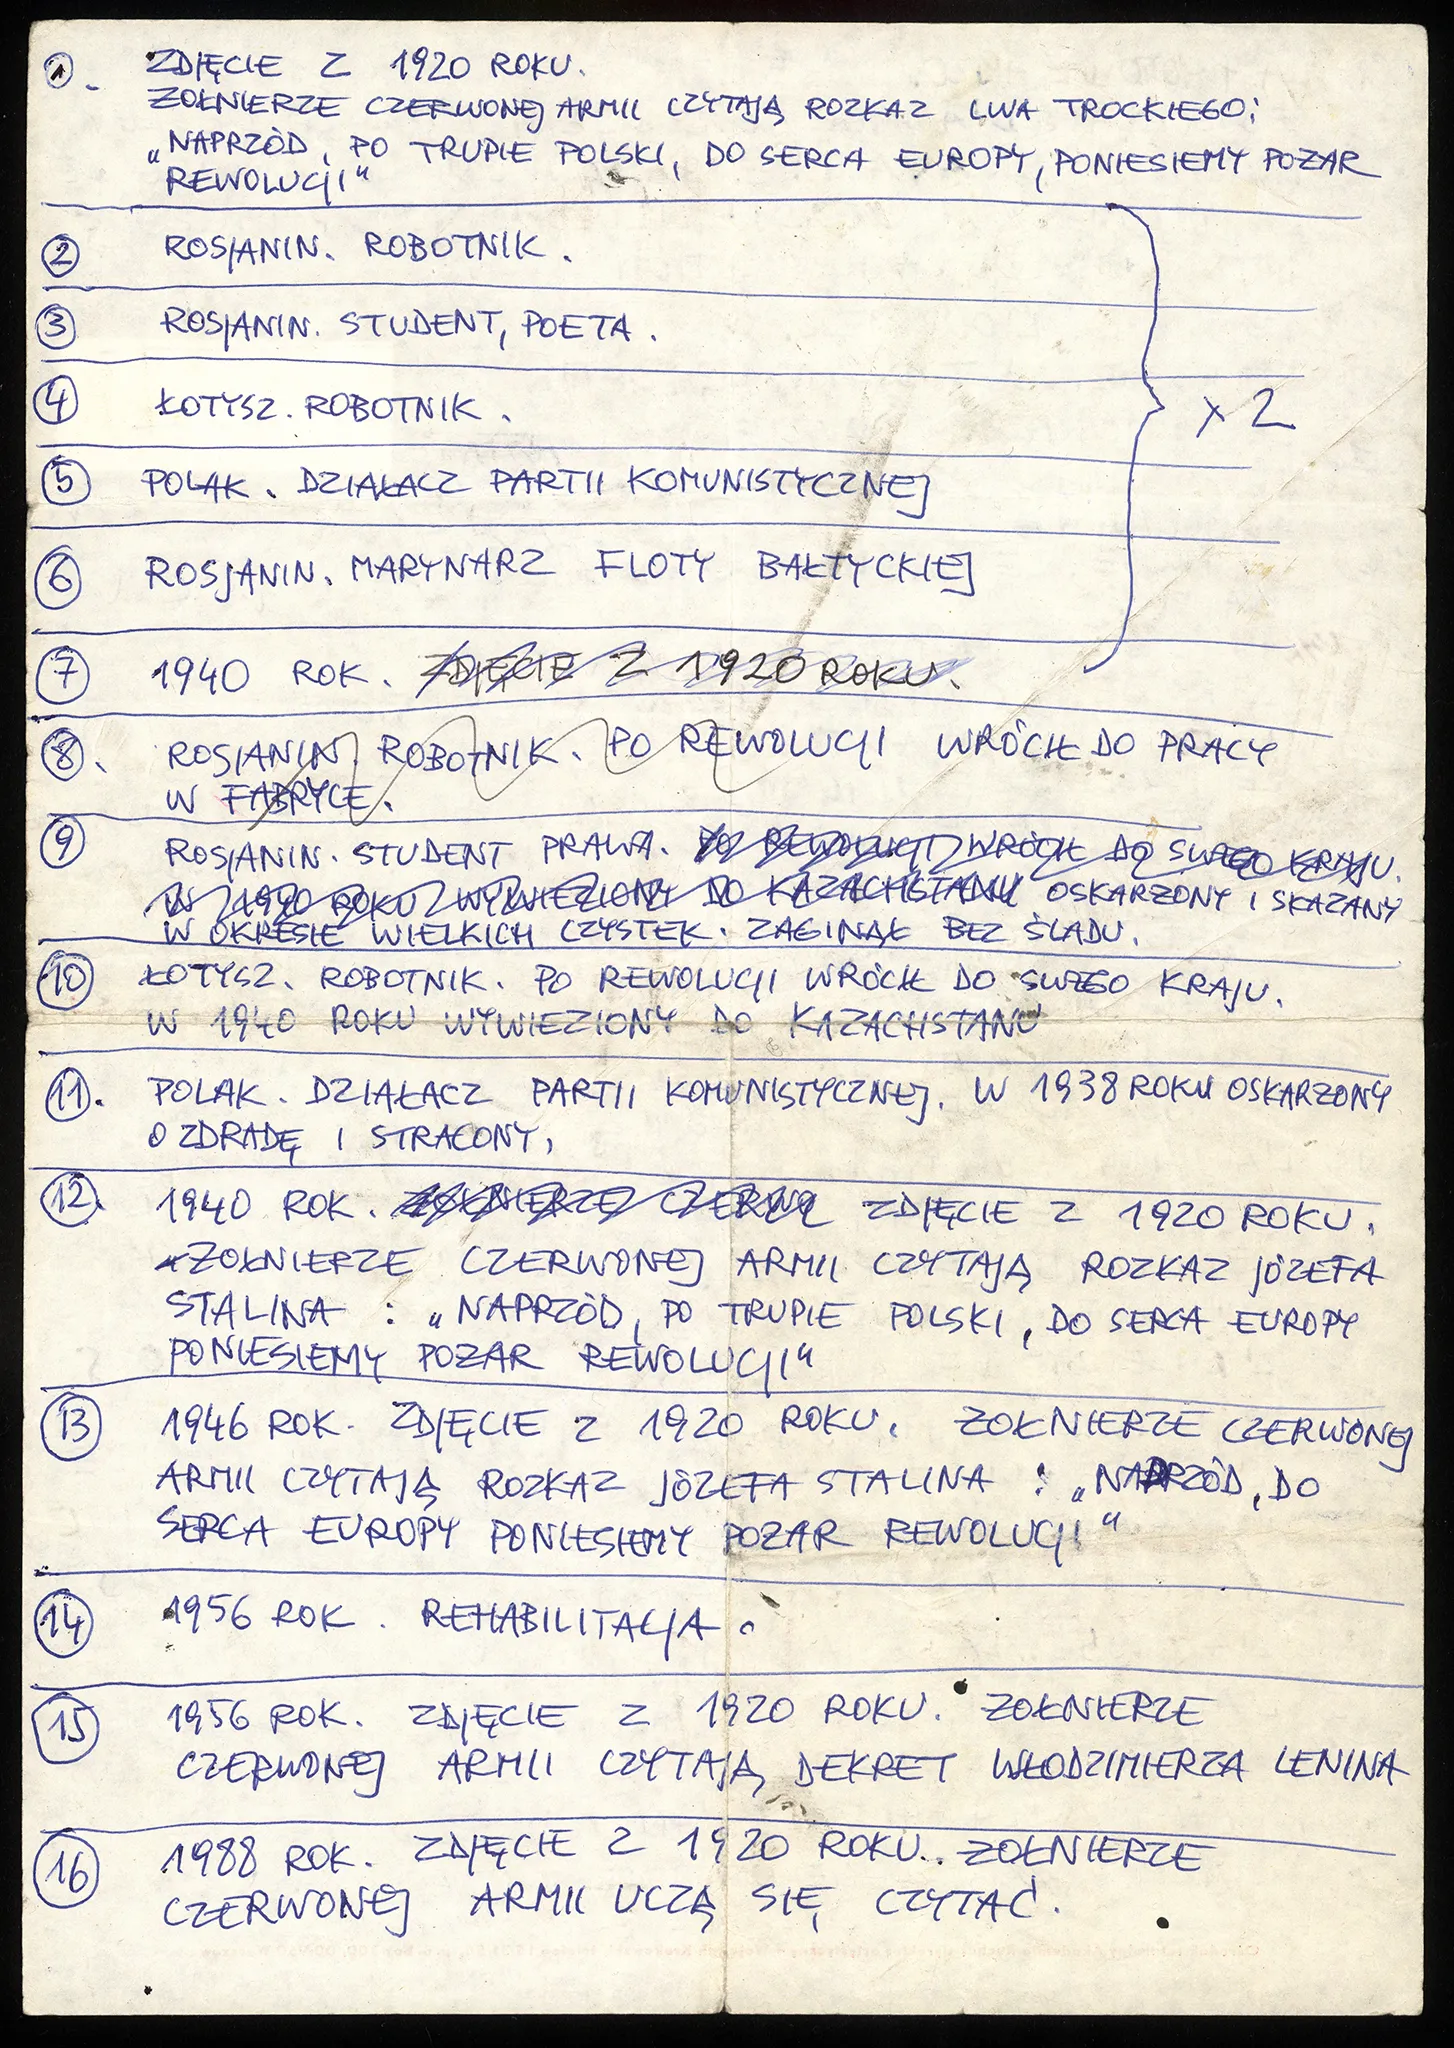 1. ZDJĘCIE Z 1920 ROKU.
ZOŁNIERZE CZERWONEJ ARMII CZYTAJĄ ROZKAZ LWA TROCKIEGO:
„NAPRZÓD, PO TRUPIE POLSKI, DO SERCA EUROPY, PONIESIEMY POZAR
REWOLUCJI"
2 ROSJANIN. ROBOTNIK.
3 ROSJANIN. STUDENT, POETA.
4 ŁOTYSZ. ROBOTNIK.
x 2
5 POLAK. DZIAŁACZ PARTII KOMUNISTYCZNEJ
6 ROSJANIN. MARYNARZ FLOTY BAŁTYCKIEJ
7 1940 ROK. ZDJĘCIE Z 1920 ROKU.
8. ROSJANIN. ROBOTNIK. PO REWOLUCJI WRÓCIŁ DO PRACY
W FABRYCE.
9 ROSJANIN. STUDENT PRAWA. PO REWOLUCJI WRÓCIŁ DO SWEGO KRAJU.
W 1940 ROKU WYWIEZIONY DO KAZACHSTANU OSKARZONY I SKAZANY
W OKRESIE WIELKICH CZYSTEK. ZAGINĄŁ BEZ ŚLADU.
10 ŁOTYSZ. ROBOTNIK. PO REWOLUCJI WRÓCIŁ DO SWEGO KRAJU.
W 1940 ROKU WYWIEZIONY DO KAZACHSTANU
11. POLAK. DZIAŁACZ PARTII KOMUNISTYCZNEJ. W 1938 ROKU OSKARZONY
O ZDRADĘ I STRACONY.
12. 1940 ROK. ZOŁNIERZE CZERWO ZDJĘCIE Z 1920 ROKU.
ZOŁNIERZE CZERWONEJ ARMII CZYTAJĄ ROZKAZ JÓZEFA
STALINA : „NAPRZÓD, PO TRUPIE POLSKI, DO SERCA EUROPY
PONIESIEMY POZAR REWOLUCJI"
13 1946 ROK. ZDJĘCIE Z 1920 ROKU. ZOŁNIERZE CZERWONEJ
ARMII CZYTAJĄ ROZKAZ JÓZEFA STALINA : „NAPRZÓD, DO
SERCA EUROPY PONIESIEMY POZAR REWOLUCJI"
14 1956 ROK. REHABILITACJA.
15 1956 ROK. ZDJĘCIE Z 1920 ROKU. ZOŁNIERZE
CZERWONEJ ARMII CZYTAJĄ DEKRET WŁODZIMIERZA LENINA
16 1988 ROK. ZDJĘCIE Z 1920 ROKU. ZOŁNIERZE
CZERWONEJ ARMII UCZĄ SIĘ CZYTAĆ.